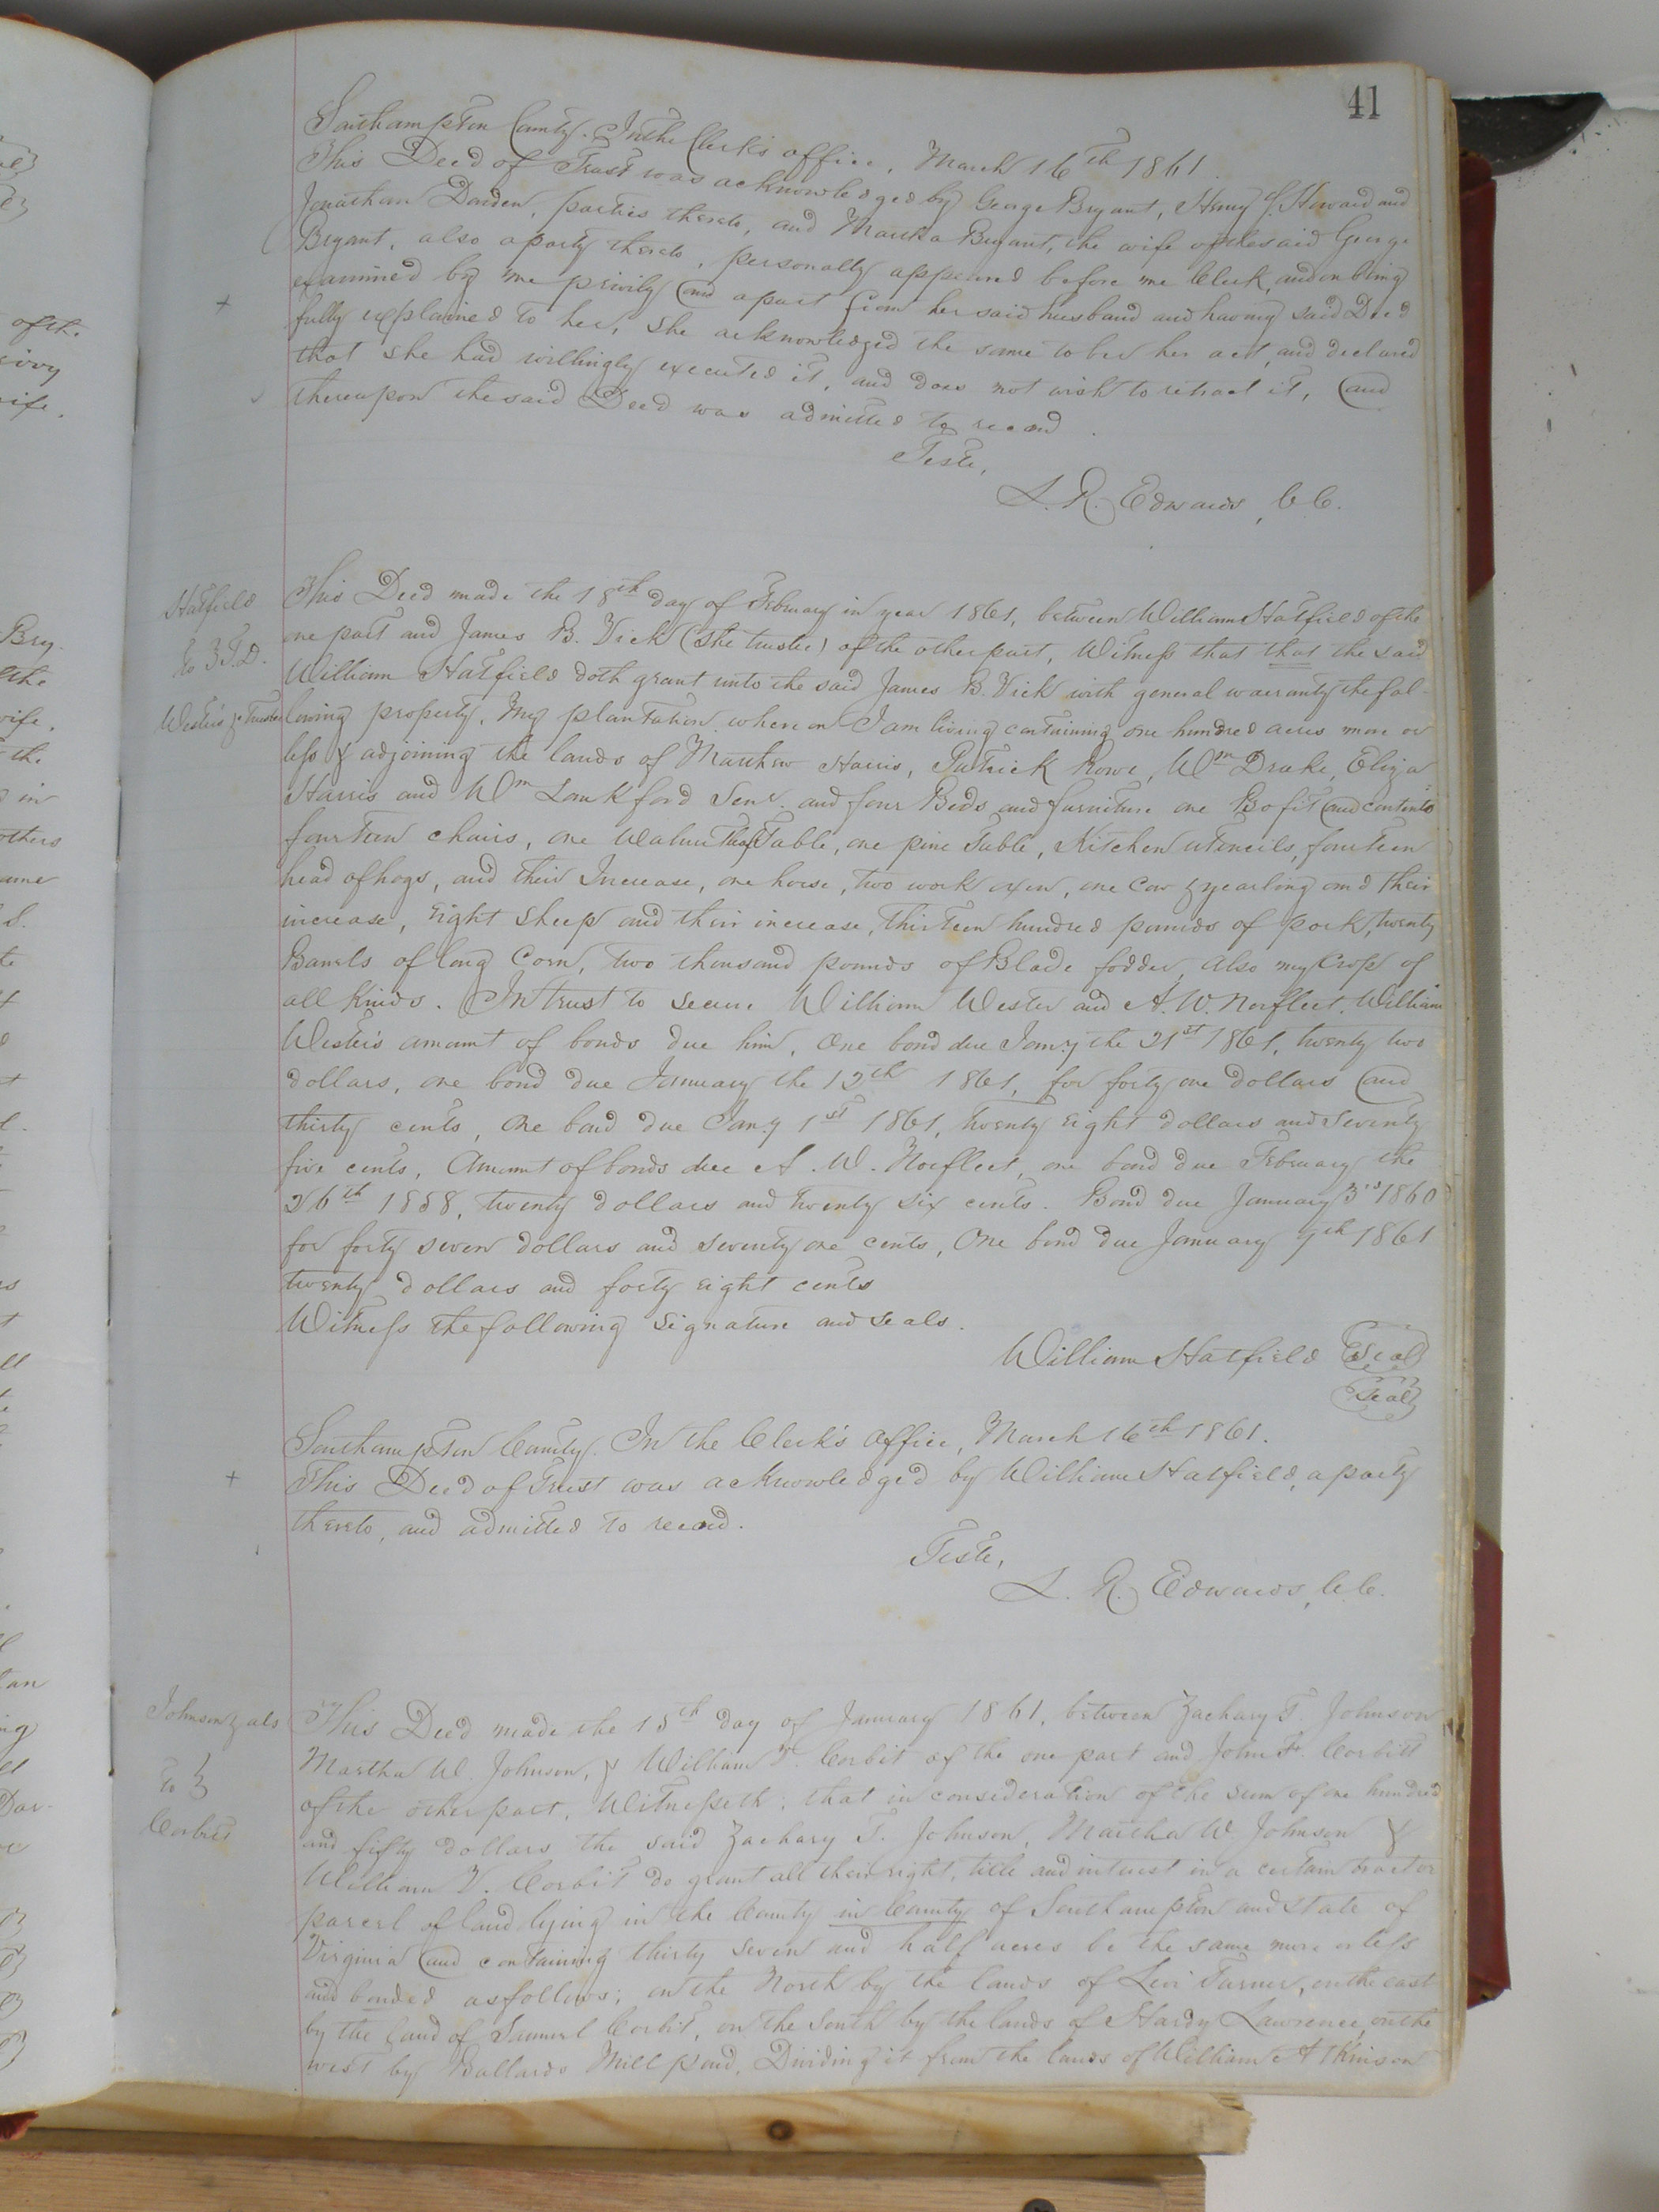 41
Southampton County. In the Clerk's office, March 16th 1861.
This Deed of Trust was acknowledged by George Bryant, Henry J. Howard and
Jonathan Darden, parties thereto, and Martha Bryant, the wife of the said George
Bryant, also a party thereto, personally appeared before me Clerk, and on being
examined by me privily and apart from her said husband and having said Deed
fully explained to her, she acknowledged the same to be her act, and declared
that she had willingly executed it, and does not wish to retract it, and
thereupon the said Deed was admitted to record.
Teste,
L. R. Edwards, CC.
Hatfield
to } T.D.
Wester's & Trustee
This Deed made the 18th day of February in year 1861, between William Hatfield of the
one part and James B. Vick (the trustee) of the other part, Witness that that the said
William Hatfield doth grant unto the said James B. Vick with general warranty the fol-
lowing property. My plantation where on I am living containing one hundred acres more or
less & adjoining the lands of Matthew Harris, Patrick Rowe, Wm Drake, Eliza
Harris and Wm Lankford Senr. and four Beds and furniture one Bofit and contents
fourteen chairs, one Walnut Table, one pine Table, Kitchen utencils, fourteen
head of hogs, and their Increase, one horse, two work oxen, one Cow & yearling and their
increase, Eight Sheep and their increase, Thirteen hundred pounds of pork, twenty
Barrels of long Corn, two thousand pounds of Blade fodder, also my Crop of
all Kinds. In trust to secure William Wester and A. W. Norfleet. William
Wester's amount of bonds due him, One bond due Jany the 21st 1861, twenty two
dollars, one bond due January the 12th 1861, for forty one dollars and
thirty cents, One bond due Jany 1st 1861, twenty Eight dollars and seventy
five cents, Amount of bonds due A. W. Norfleet, one bond due February the
26th 1858, twenty dollars and twenty six cents. Bond due January 3rd 1860
for forty seven dollars and seventy one cents, One bond due January 7th 1861
twenty dollars and forty eight cents
Witness the following signature and seals.
William Hatfield {Seal}
{Seal}
Southampton County. In the Clerk's Office, March 16th 1861.
This Deed of Trust was acknowledged by William Hatfield, a party
thereto, and admitted to record.
Teste,
L. R. Edwards, CC.
Johnson & als
to }
Corbit
This Deed made the 15th day of January 1861, between Zachary T. Johnson
Martha W. Johnson, & William V. Corbit of the one part and John F. Corbitt
of the other part, Witnesseth: that in consideration of the sum of one hundred
and fifty dollars the said Zachary T. Johnson, Martha W. Johnson &
William V. Corbit do grant all their right, title and interest in a certain tract or
parcel of land lying in the County in County of Southampton and State of
Virginia and containing thirty seven and half acres be the same more or less
and bonded as follows; on the North by the lands of Levi Turner, on the east
by the land of Samuel Corbit, on the South by the lands of Hardy Lawrence, on the
west by Ballards Mill pond, Dividing it from the lands of William Atkinson